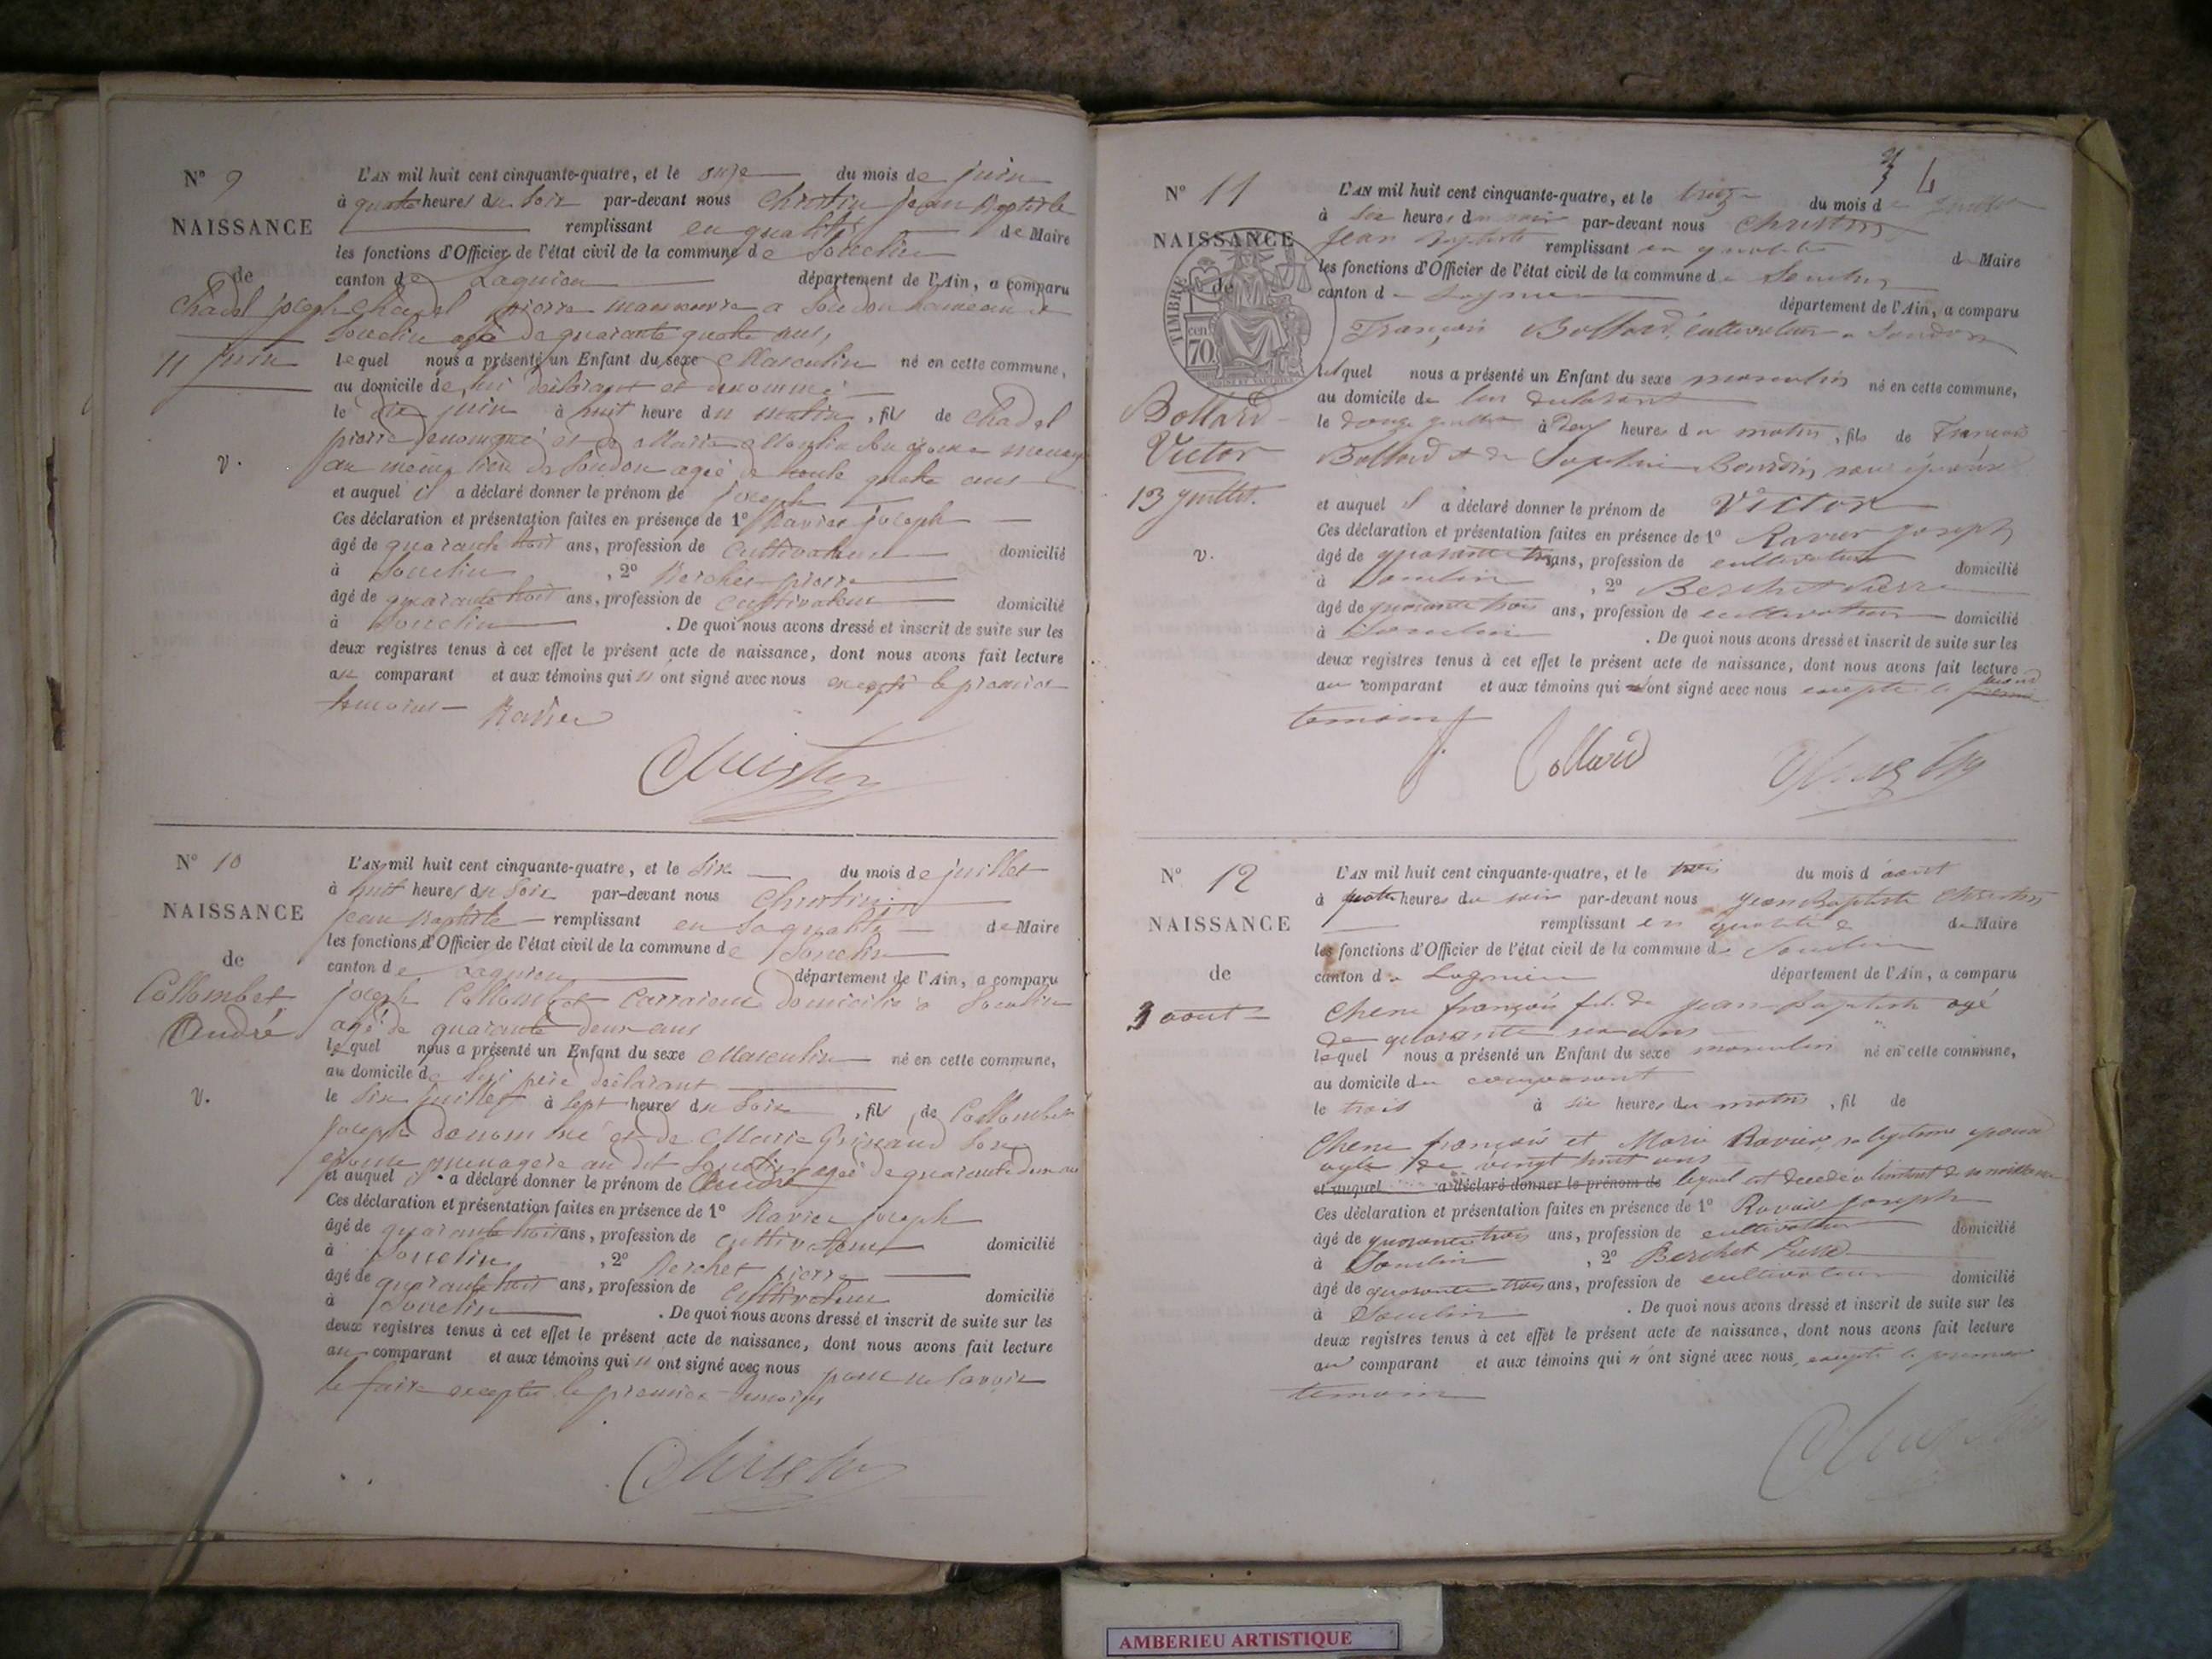 N° 9
NAISSANCE
de
Chadel joseph
11 juin
v.
L'AN mil huit cent cinquante-quatre, et le onze du mois de juin
à quatre heures du soir par-devant nous Christin jean Baptiste
remplissant en qualité de Maire
les fonctions d'Officier de l'état civil de la commune de Souclin
canton de Lagnieu département de l'Ain, a comparu
Chadel pierre manoeuvre a Soudon hameau de
Souclin agé de quarante quatre ans,
lequel nous a présenté un Enfant du sexe Masculin né en cette commune,
au domicile de lui déclarant et denommé
le dix juin à huit heure du matin, fils de Chadel
pierre denommé et de Marie
au même lieu de Soudon agée de quatre ans
et auquel il a déclaré donner le prénom de joseph
Ces déclaration et présentation faites en présence de 1° Ravier joseph
âgé de quarante trois ans, profession de Cultivateur domicilié
à Souclin, 2° Berchet pierre
âgé de quarante trois ans, profession de Cultivateur domicilié
à Souclin. De quoi nous avons dressé et inscrit de suite sur les
deux registres tenus à cet effet le présent acte de naissance, dont nous avons fait lecture
au comparant et aux témoins qui n ont signé avec nous excepté le premier
temoins Ravier
Christin
N° 10
NAISSANCE
de
Collombet
André
v.
L'AN mil huit cent cinquante-quatre, et le six du mois de juillet
à huit heures du soir par-devant nous Christin
jean Baptiste remplissant en sa qualité de Maire
les fonctions d'Officier de l'état civil de la commune de Souclin
canton de Lagnieu département de l'Ain, a comparu
joseph Collombet Carrieur domicilié à Souclin
agé de quarante deux ans
lequel nous a présenté un Enfant du sexe Masculin né en cette commune,
au domicile de lui père déclarant
le six juillet à sept heures du soir, fils de Collombet
joseph denommé et de Marie son
épouse menagère au dit Souclin agée de quarante deux ans
et auquel il a déclaré donner le prénom de André
Ces déclaration et présentation faites en présence de 1° Ravier joseph
âgé de quarante trois ans, profession de Cultivateur domicilié
à Souclin, 2° Berchet pierre
âgé de quarante trois ans, profession de Cultivateur domicilié
à Souclin. De quoi nous avons dressé et inscrit de suite sur les
deux registres tenus à cet effet le présent acte de naissance, dont nous avons fait lecture
au comparant et aux témoins qui n ont signé avec nous pour ne savoir
le faire excepté le premier temoins
Christin
4
N° 11
NAISSANCE
de
TIMBRE
70 cen
Bollard
Victor
13 juillet.
v.
L'AN mil huit cent cinquante-quatre, et le treize du mois de juillet
à six heures du soir par-devant nous Christin
Jean Baptiste remplissant en qualité de Maire
les fonctions d'Officier de l'état civil de la commune de Souclin
canton de Lagnieu département de l'Ain, a comparu
François Bollard, cultivateur a Soudon
lequel nous a présenté un Enfant du sexe masculin né en cette commune,
au domicile de lui declarant
le douze juillet à Deux heures du matin, fils de François
Bollard et de Sophie Bourdin, son épouse
et auquel il a déclaré donner le prénom de Victor
Ces déclaration et présentation faites en présence de 1° Ravier joseph
âgé de quarante trois ans, profession de cultivateur domicilié
à Souclin, 2° Berchet Pierre
âgé de quarante trois ans, profession de cultivateur domicilié
à Souclin. De quoi nous avons dressé et inscrit de suite sur les
deux registres tenus à cet effet le présent acte de naissance, dont nous avons fait lecture
au comparant et aux témoins qui ont signé avec nous excepté le second
temoins
Bollard Christin
N° 12
NAISSANCE
de
3 aout
L'AN mil huit cent cinquante-quatre, et le trois du mois d'août
à quatre heures du soir par-devant nous Jean Baptiste Christin
remplissant en qualité de Maire
les fonctions d'Officier de l'état civil de la commune de Souclin
canton de Lagnieu département de l'Ain, a comparu
Chene françois fils de jean baptiste agé
de quarante six ans
lequel nous a présenté un Enfant du sexe masculin né en cette commune,
au domicile du comparant
le trois à six heures du matin, fil de
Chene françois et Marie Ravier, sa légitime épouse
agée de vingt huit ans
et auquel a déclaré donner le prénom de lequel est decedé a l'instant de sa naissance
Ces déclaration et présentation faites en présence de 1° Ravier Joseph
âgé de quarante trois ans, profession de cultivateur domicilié
à Souclin, 2° Berchet Pierre
âgé de quarante trois ans, profession de cultivateur domicilié
à Souclin. De quoi nous avons dressé et inscrit de suite sur les
deux registres tenus à cet effet le présent acte de naissance, dont nous avons fait lecture
au comparant et aux témoins qui n'ont signé avec nous, excepté le premier
temoin
Christin
AMBERIEU ARTISTIQUE